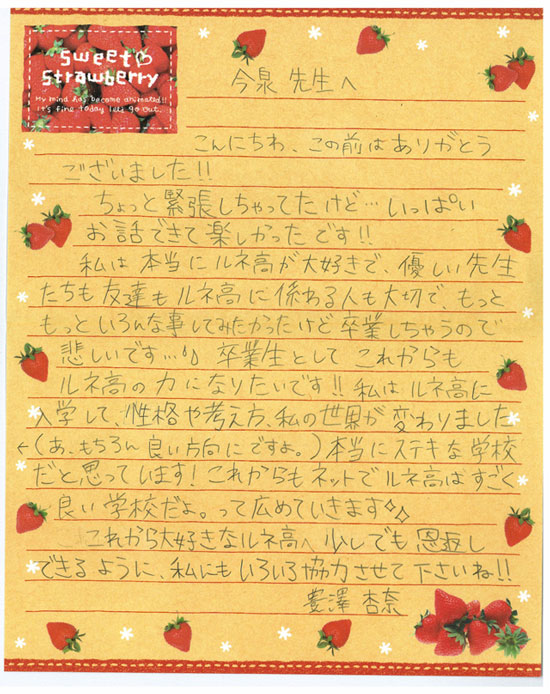 Sweet
Strawberry
My mind has become animated!!
It's fine today let's go out.
今泉 先生へ
こんにちわ、この前はありがとう
ございました!!
ちょっと緊張しちゃってたけど…いっぱい
お話できて楽しかったです!!
私は本当にルネ高が大好きで、優しい先生
たちも友達もルネ高に係わる人も大切で、もっと
もっといろんな事してみたかったけど卒業しちゃうので
悲しいです…。 卒業生として これからも
ルネ高の力になりたいです!! 私はルネ高に
入学して、性格や考え方、私の世界が変わりました
←(あ、もちろん良い方向にですよ。)本当にステキな学校
だと思っています! これからもネットでルネ高はすごく
良い学校だよ。って広めていきます✧✧
これから大好きなルネ高へ少しでも恩返し
できるように、私にもいろいろ協力させて下さいね!!
豊澤 杏奈